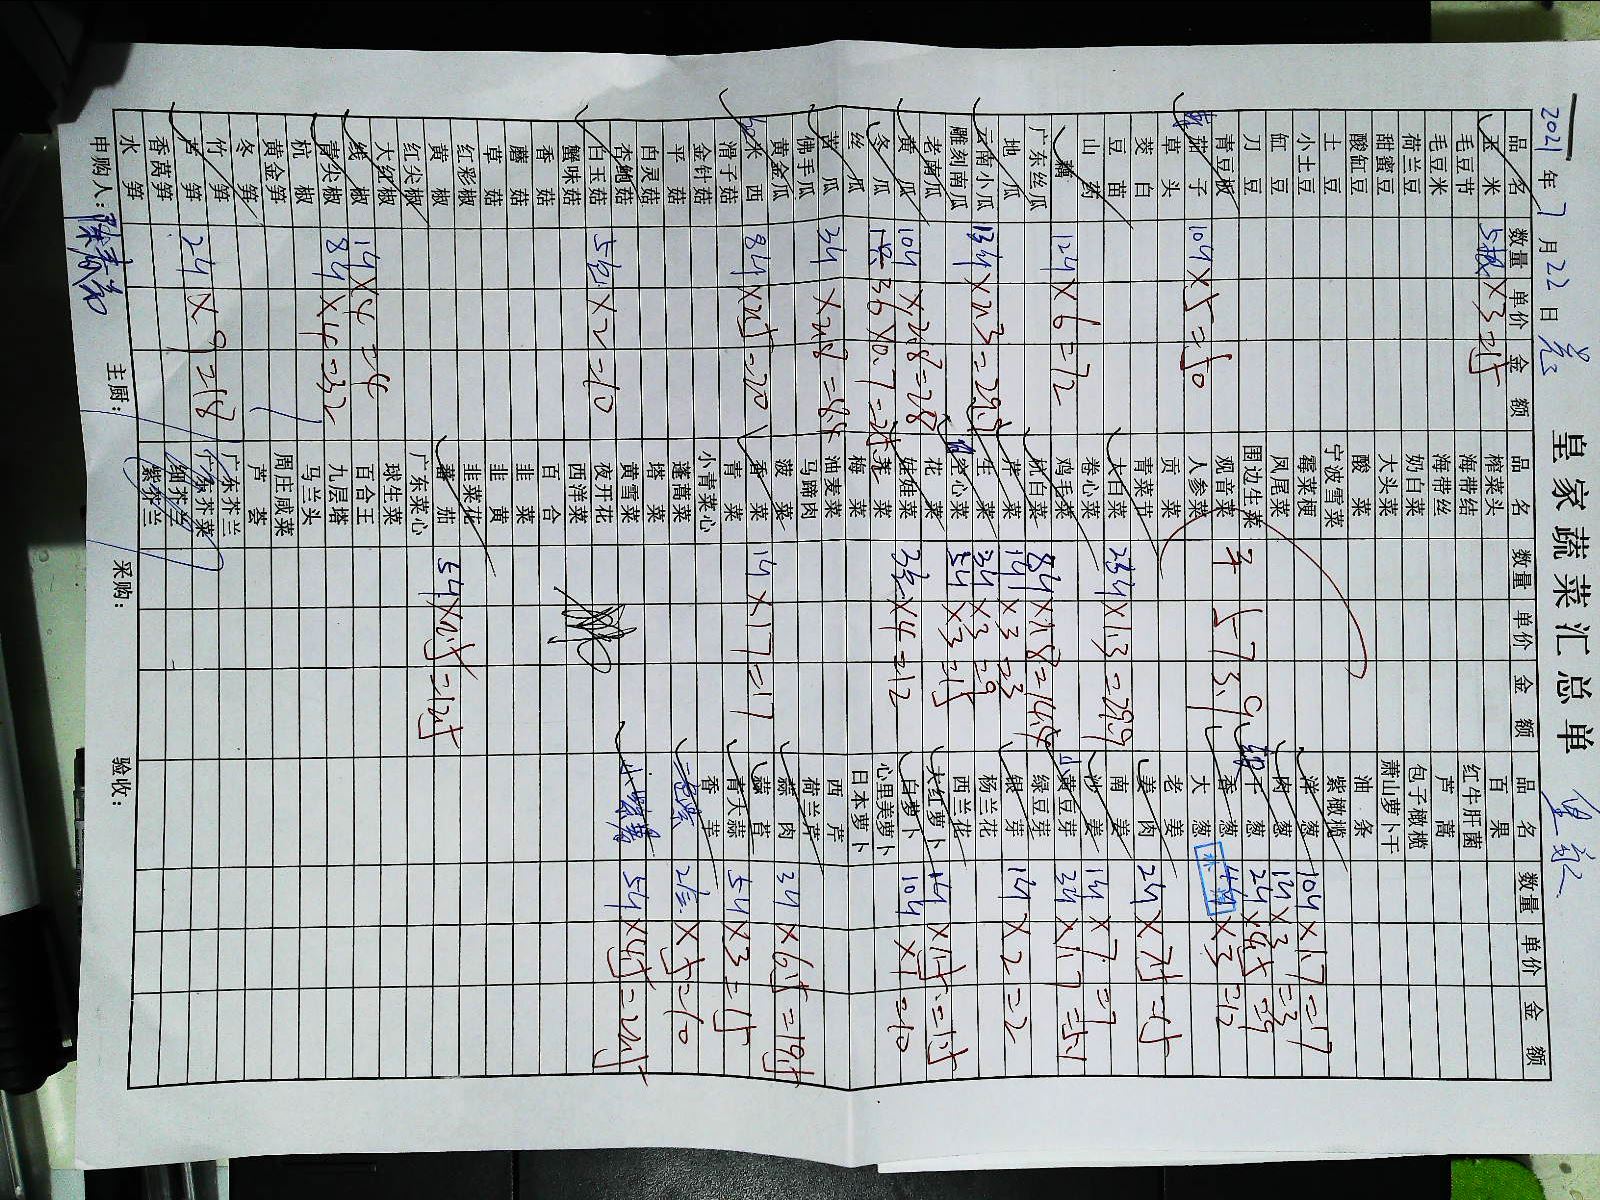 皇家蔬菜汇总单
2021年7月22日
品名 数量 单价 金额 品名 数量 单价 金额 品名 数量 单价 金额
玉米 ×3= 榨菜头 百果
毛豆节 海带结 红牛肝菌
毛豆米 海带丝 芦蒿
荷兰豆 奶白菜 包子橄榄
甜蜜豆 大头菜 萧山萝卜干
酸缸豆 酸菜 油条
土豆 宁波雪菜 紫橄榄
小土豆 霉菜梗 洋葱 10斤×1.7=17
缸豆 凤尾菜 肉葱 1斤×3=3
刀豆 围边生菜 干葱 2斤×4.5=9
青豆板 观音菜 香葱 4斤×3=12
茄子 10斤×5=50 人参菜 大葱
草头 贡菜 老姜
茭白 青菜节 姜肉 2斤×7.5=15
豆苗 大白菜 23斤×1.3=29.9 南姜
山药 卷心菜 沙姜 1斤×7=7
藕 12斤×6=72 鸡毛菜 黄豆芽 3斤×1.7=5.1
广东丝瓜 杭白菜 8斤×1.8=14.4 绿豆芽
地瓜 芹菜 1斤×3=3 银芽 1斤×2=2
云南小瓜 13斤×2.3=29.9 生菜 3斤×3=9 杨兰花
雕刻南瓜 空心菜 5斤×3=15 西兰花
老南瓜 花菜 大红萝卜 1斤×1.5=1.5
黄瓜 10斤×2.8=28 娃娃菜 3袋×4=12 白萝卜 10斤×1=10
冬瓜 36×0.7=25 苋菜 心里美萝卜
丝瓜 梅菜 日本萝卜
苦瓜 3斤×2.8=8.4 油麦菜 西芹
佛手瓜 马蹄肉 荷兰芹
黄金瓜 菠菜 蒜肉 3斤×6.5=19.5
西 8斤×2.5=20 香菜 1斤×17=17 蒜苔
滑子菇 青菜 青大蒜 5斤×3=15
金针菇 小青菜心 香芋
平菇 蓬蒿菜 2×5=10
白灵菇 塔菜
杏鲍菇 黄雪菜 5斤×4.5=22.5
白玉菇 5包×2=10 夜开花
蟹味菇 西洋菜
香菇 百合
蘑菇 韭菜
草菇 韭黄
红彩椒 韭菜花
黄椒 蕃茄 5斤×2.5=12.5
红尖椒 广东菜心
大红椒 球生菜
线椒 1斤×4=4 百合王
青尖椒 8斤×4=32 九层塔
杭椒 马兰头
黄金笋 周庄咸菜
冬笋 芦荟
竹笋 广东芥兰
芦笋 2斤×9=18 广东芥菜
香莴笋 细芥兰
水笋 紫芥兰
申购人: 主厨: 采购: 验收: